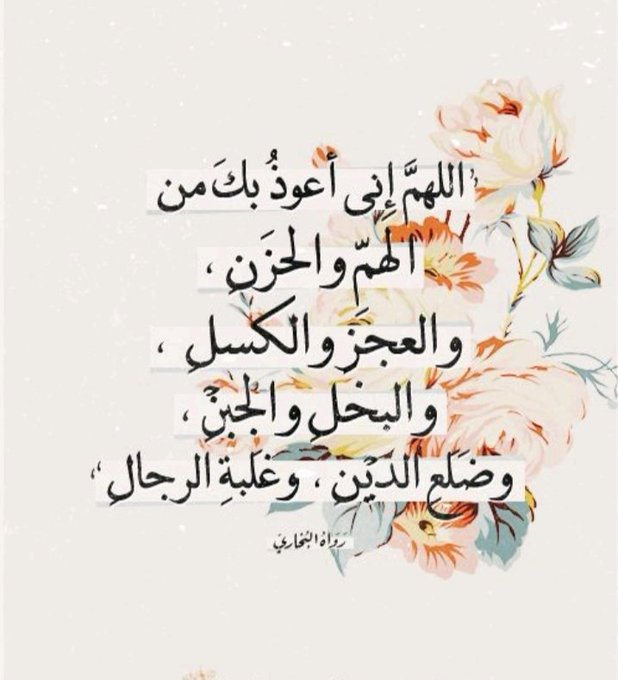 "اللهمَّ إِنى أعوذُ بكَ من
الهمّ والحزَنِ ،
والعجزِ والكسلِ ،
والبخلِ والجُبنْ ،
وضَلَعِ الدَيْنِ ، وغَلَبةِ الرجالِ"
رَوَاهُ البُخَاريّ